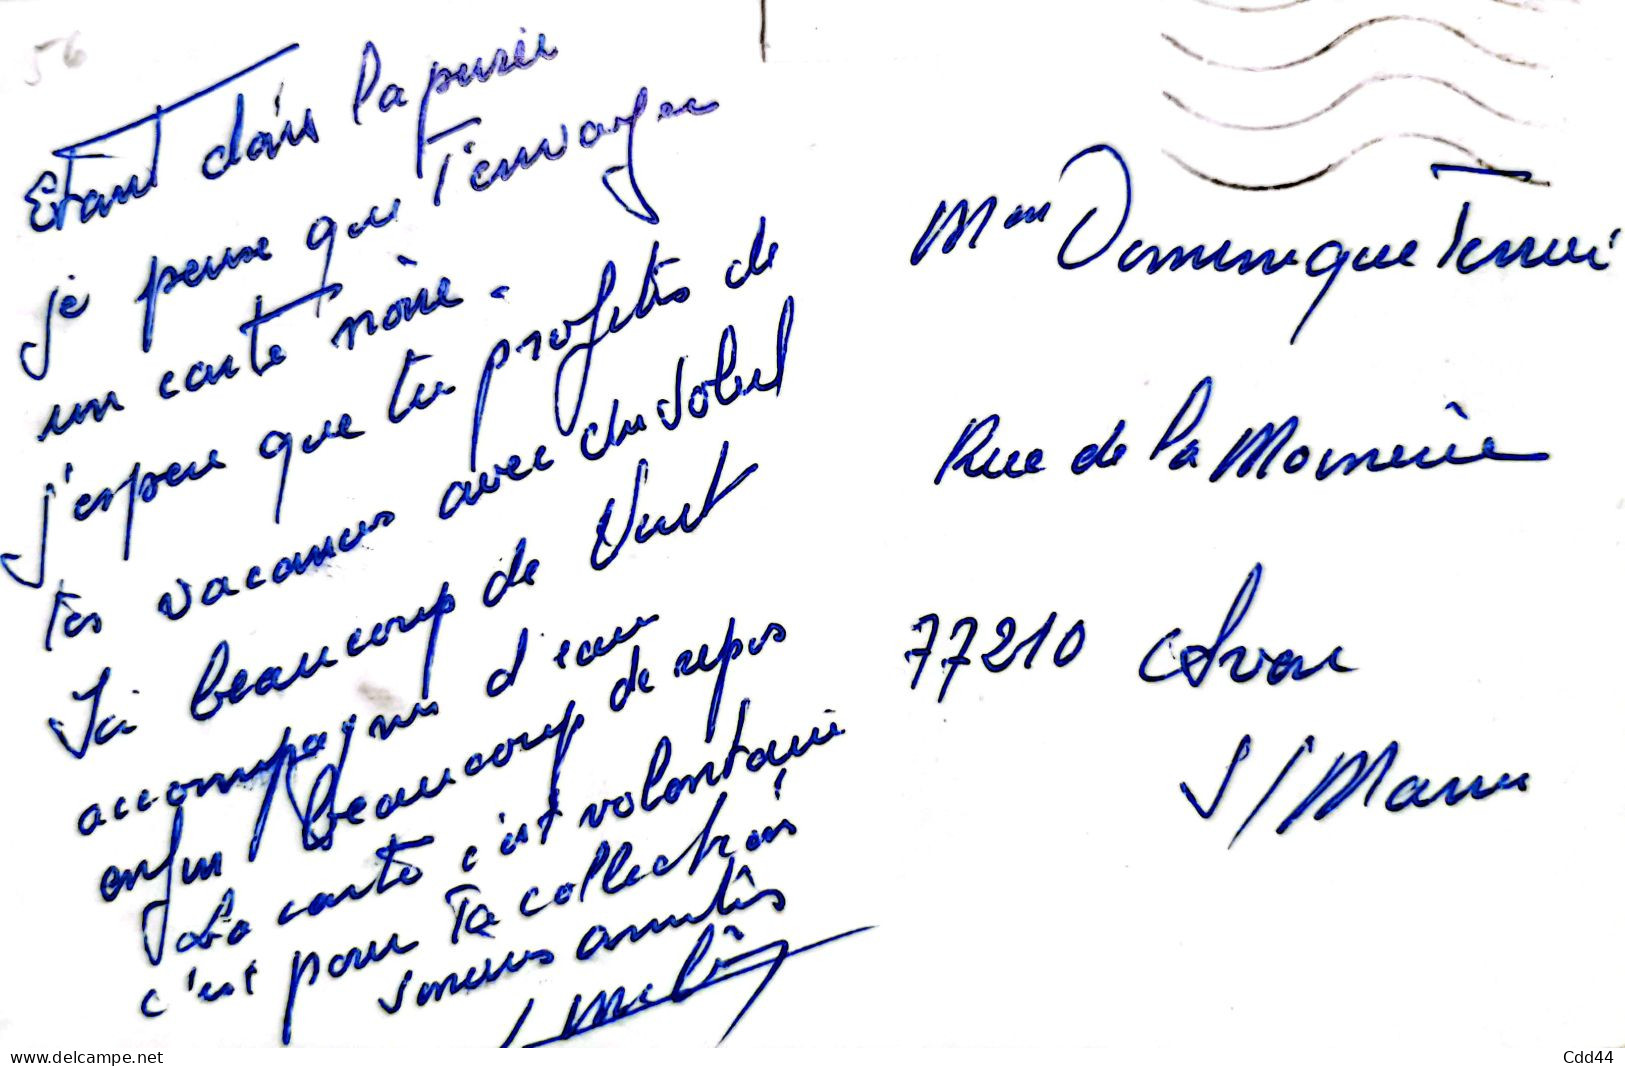 56
Etant dans la purée
je pense que t'envoyer
une carte noire.
j'espère que tu profites de
tes vacances avec du soleil
Ici beaucoup de Vent
accompagnés d'eau
enfin beaucoup de repos
La carte c'est volontaire
c'est pour ta collection
amitiés
Mme Dominique
Rue de la
77210 Avon
S/
www.delcampe.net
Cdd44